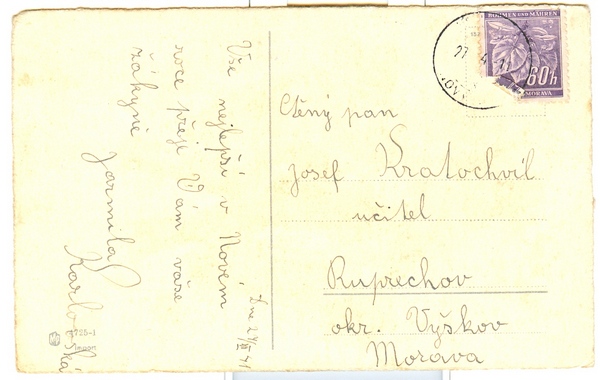 Vše nejlepší v Novém
roce přeje Vám vaše
žákyně
Jarmila
BÖHMEN UND MÄHREN
60h
MORAVA
Ctěný pan
Josef Kratochvíl
učitel
Ruprechov
okr. Vyškov
Morava